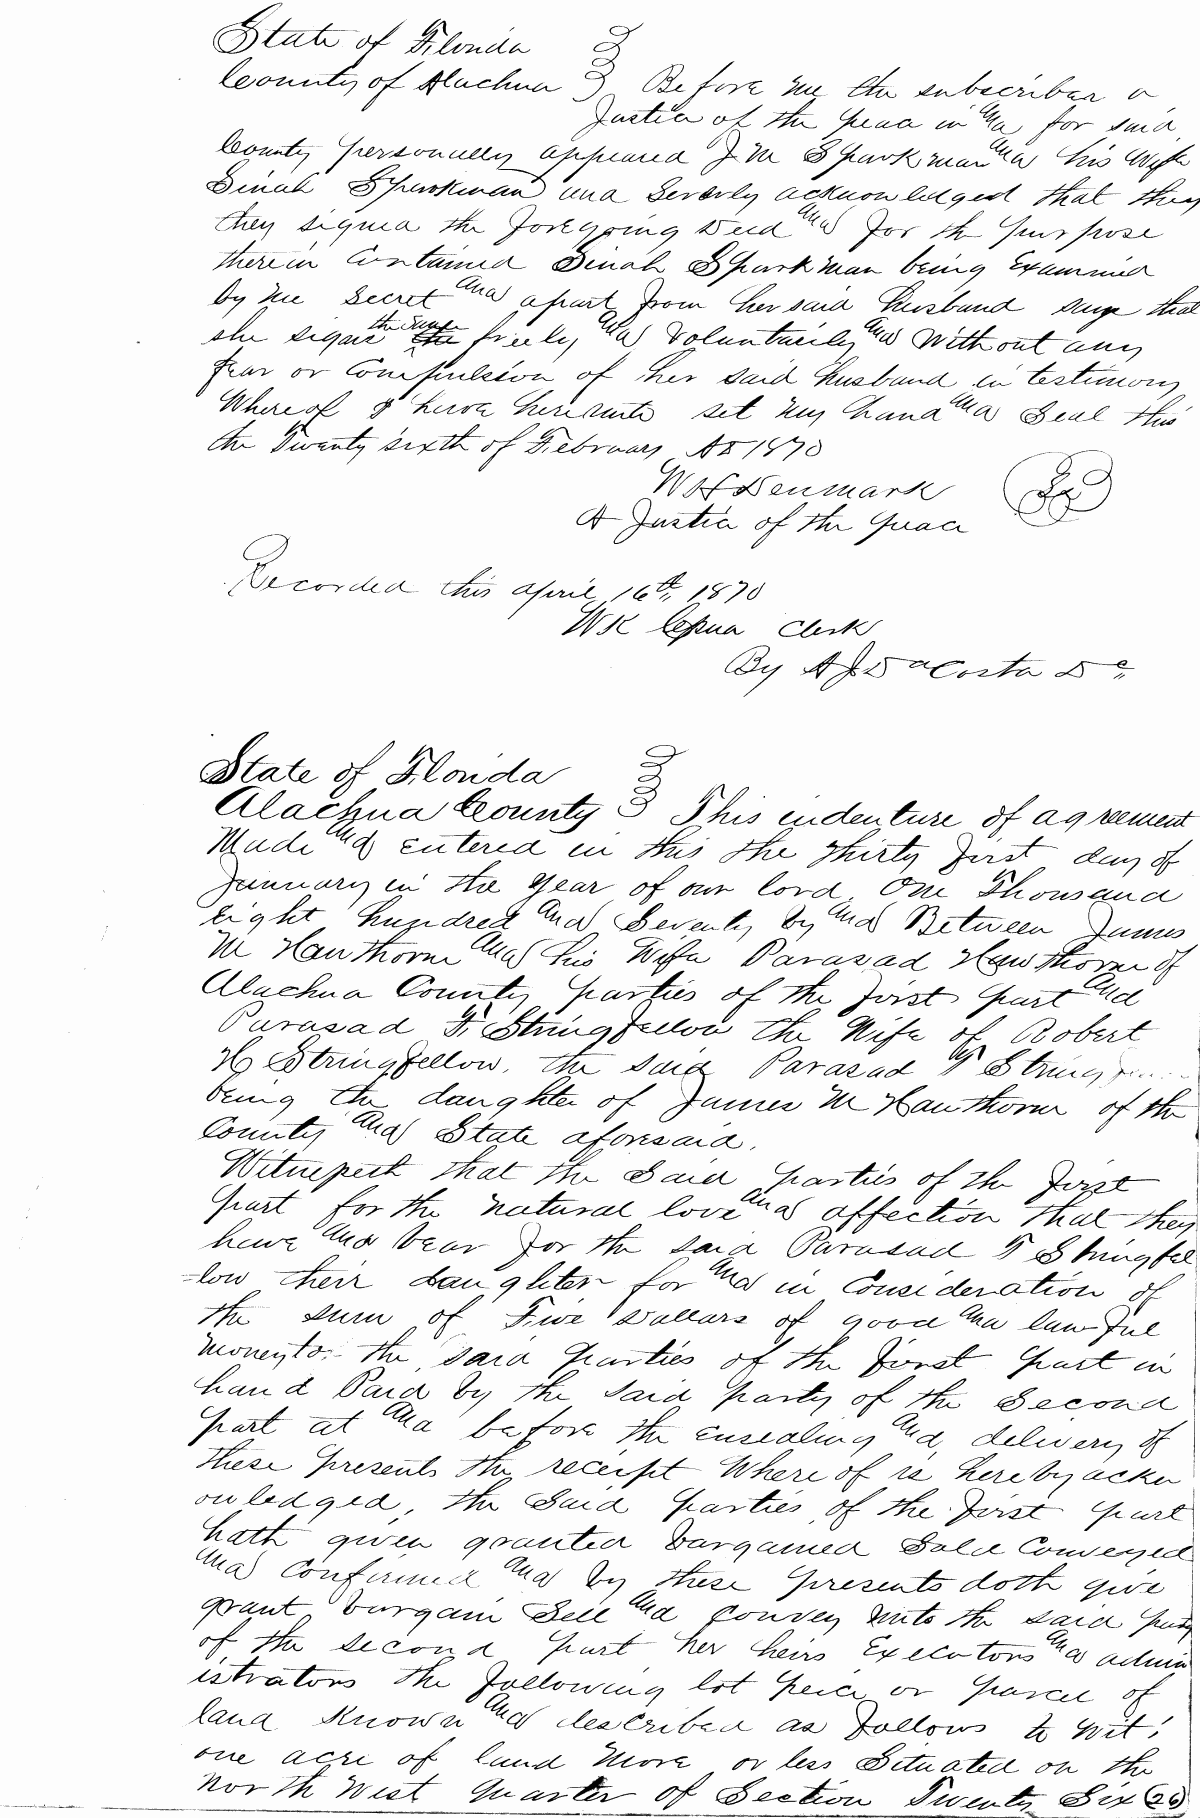 State of Florida
County of Alachua } Before me the subscriber a
Justice of the peace in and for said
County personally appeared J M Sparkman and his Wife
Sinah Sparkman and Severly acknowledged that they
they signed the foregoing Deed and for the purpose
therein Contained Sinah Sparkman being Examined
by me Secret and apart from her said husband says that
she signs the same freely and Voluntarily and Without any
fear or Compulsion of her said husband in testimony
Whereof I have hereunto set my hand and Seal this
the Twenty sixth of February AD 1870
W H Denmark
A Justice of the peace
Recorded this april 16th, 1870
WK Clerk
By A J DaCosta
State of Florida
Alachua County } This indenture of agreement
Made and entered in this the thirty first day of
January in the Year of our lord One Thousand
Eight hundred and Seventy by and Between James
M Hawthorne and his Wife Parasad Hawthorne of
Alachua County parties of the first part and
Parasad F. Stringfellow the Wife of Robert
H Stringfellow, the said Parasad
being the daughter of James M Hawthorne of the
County and State aforesaid.
Witnesseth that the Said parties of the First
part for the natural love and affection that they
have and bear for the said Parasad F Stringfel
-low their daughter for and in Consideration of
the sum of Five Dollars of good and lawful
money to the said parties of the first part in
hand Paid by the Said party of the Second
part at and before the ensealing and delivery of
these presents the receipt Where of is hereby ackn
owledged, the Said parties of the first part
hath given granted bargained Sold Conveyed
and Confirmed and by these presents doth give
grant bargain Sell and convey unto the said party
of the second part her heirs Executors and admin
istrators the following lot peice or parcel of
land Known and described as follows to wit:
one acre of land More or less Situated on the
north West quarter of Section Twenty Six (26)